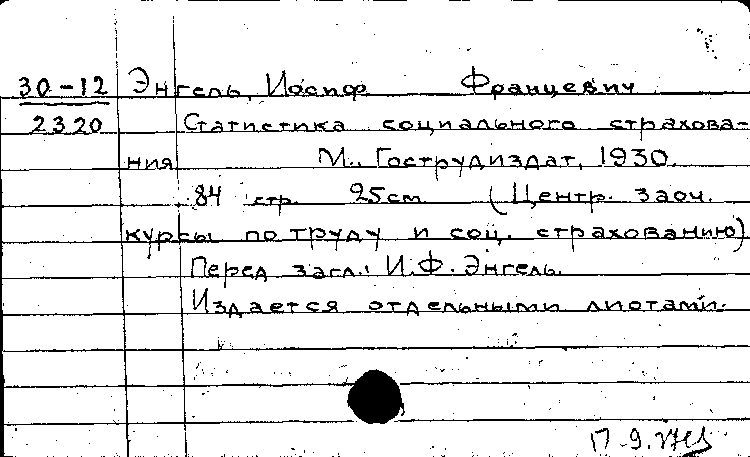 30-12 Энгель, Иосиф Францевич
2320 Статистика социального страхова-
ния М., Гострудиздат, 1930.
84 стр. 25см (Центр. заоч.
курсы по труду и соц. страхованию)
Перед загл.: И.Ф. Энгель.
Издается отдельными листами.
П-9.